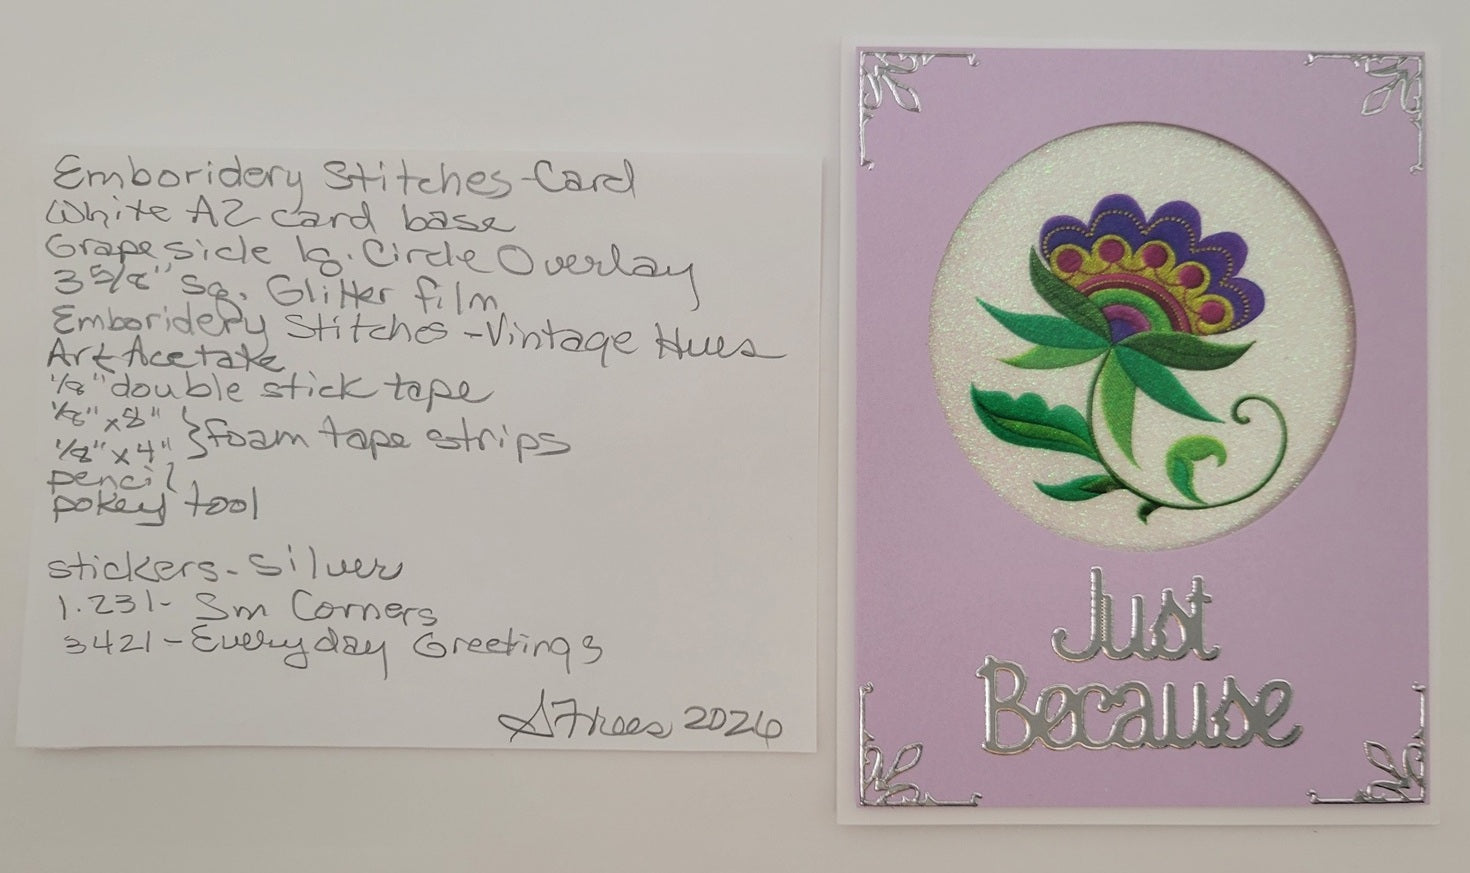 Emboridery Stitches-Card
White A2 card base
Grapesicle lg. Circle Overlay
3 5/8" Sq. Glitter film
Emboridery Stitches-Vintage Hues
Art Acetate
1/8" double stick tape
1/8" x 8"
1/8" x 4" } foam tape strips
pencil
pokey tool
stickers-Silver
1.231- Sm Corners
3421-Everyday Greetings
2026
Just
Because